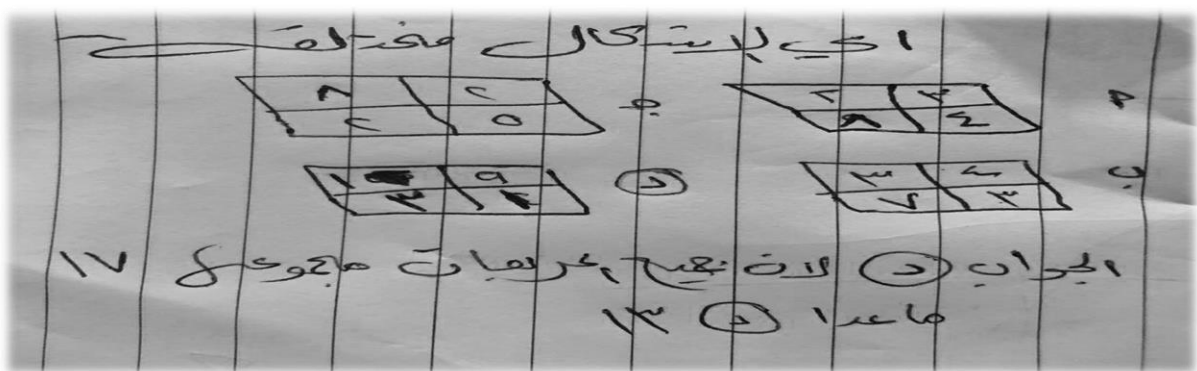 اي الاشكال مختلف
أ ٣ ٢ ٤ ٨
جـ ٢ ٨ ٥ ٢
ب ٤ ٣ ٣ ٧
د ٩ ١ ٣
الجواب د لان جميع المربعات مجموعهم ١٧
ماعدا د ١٣